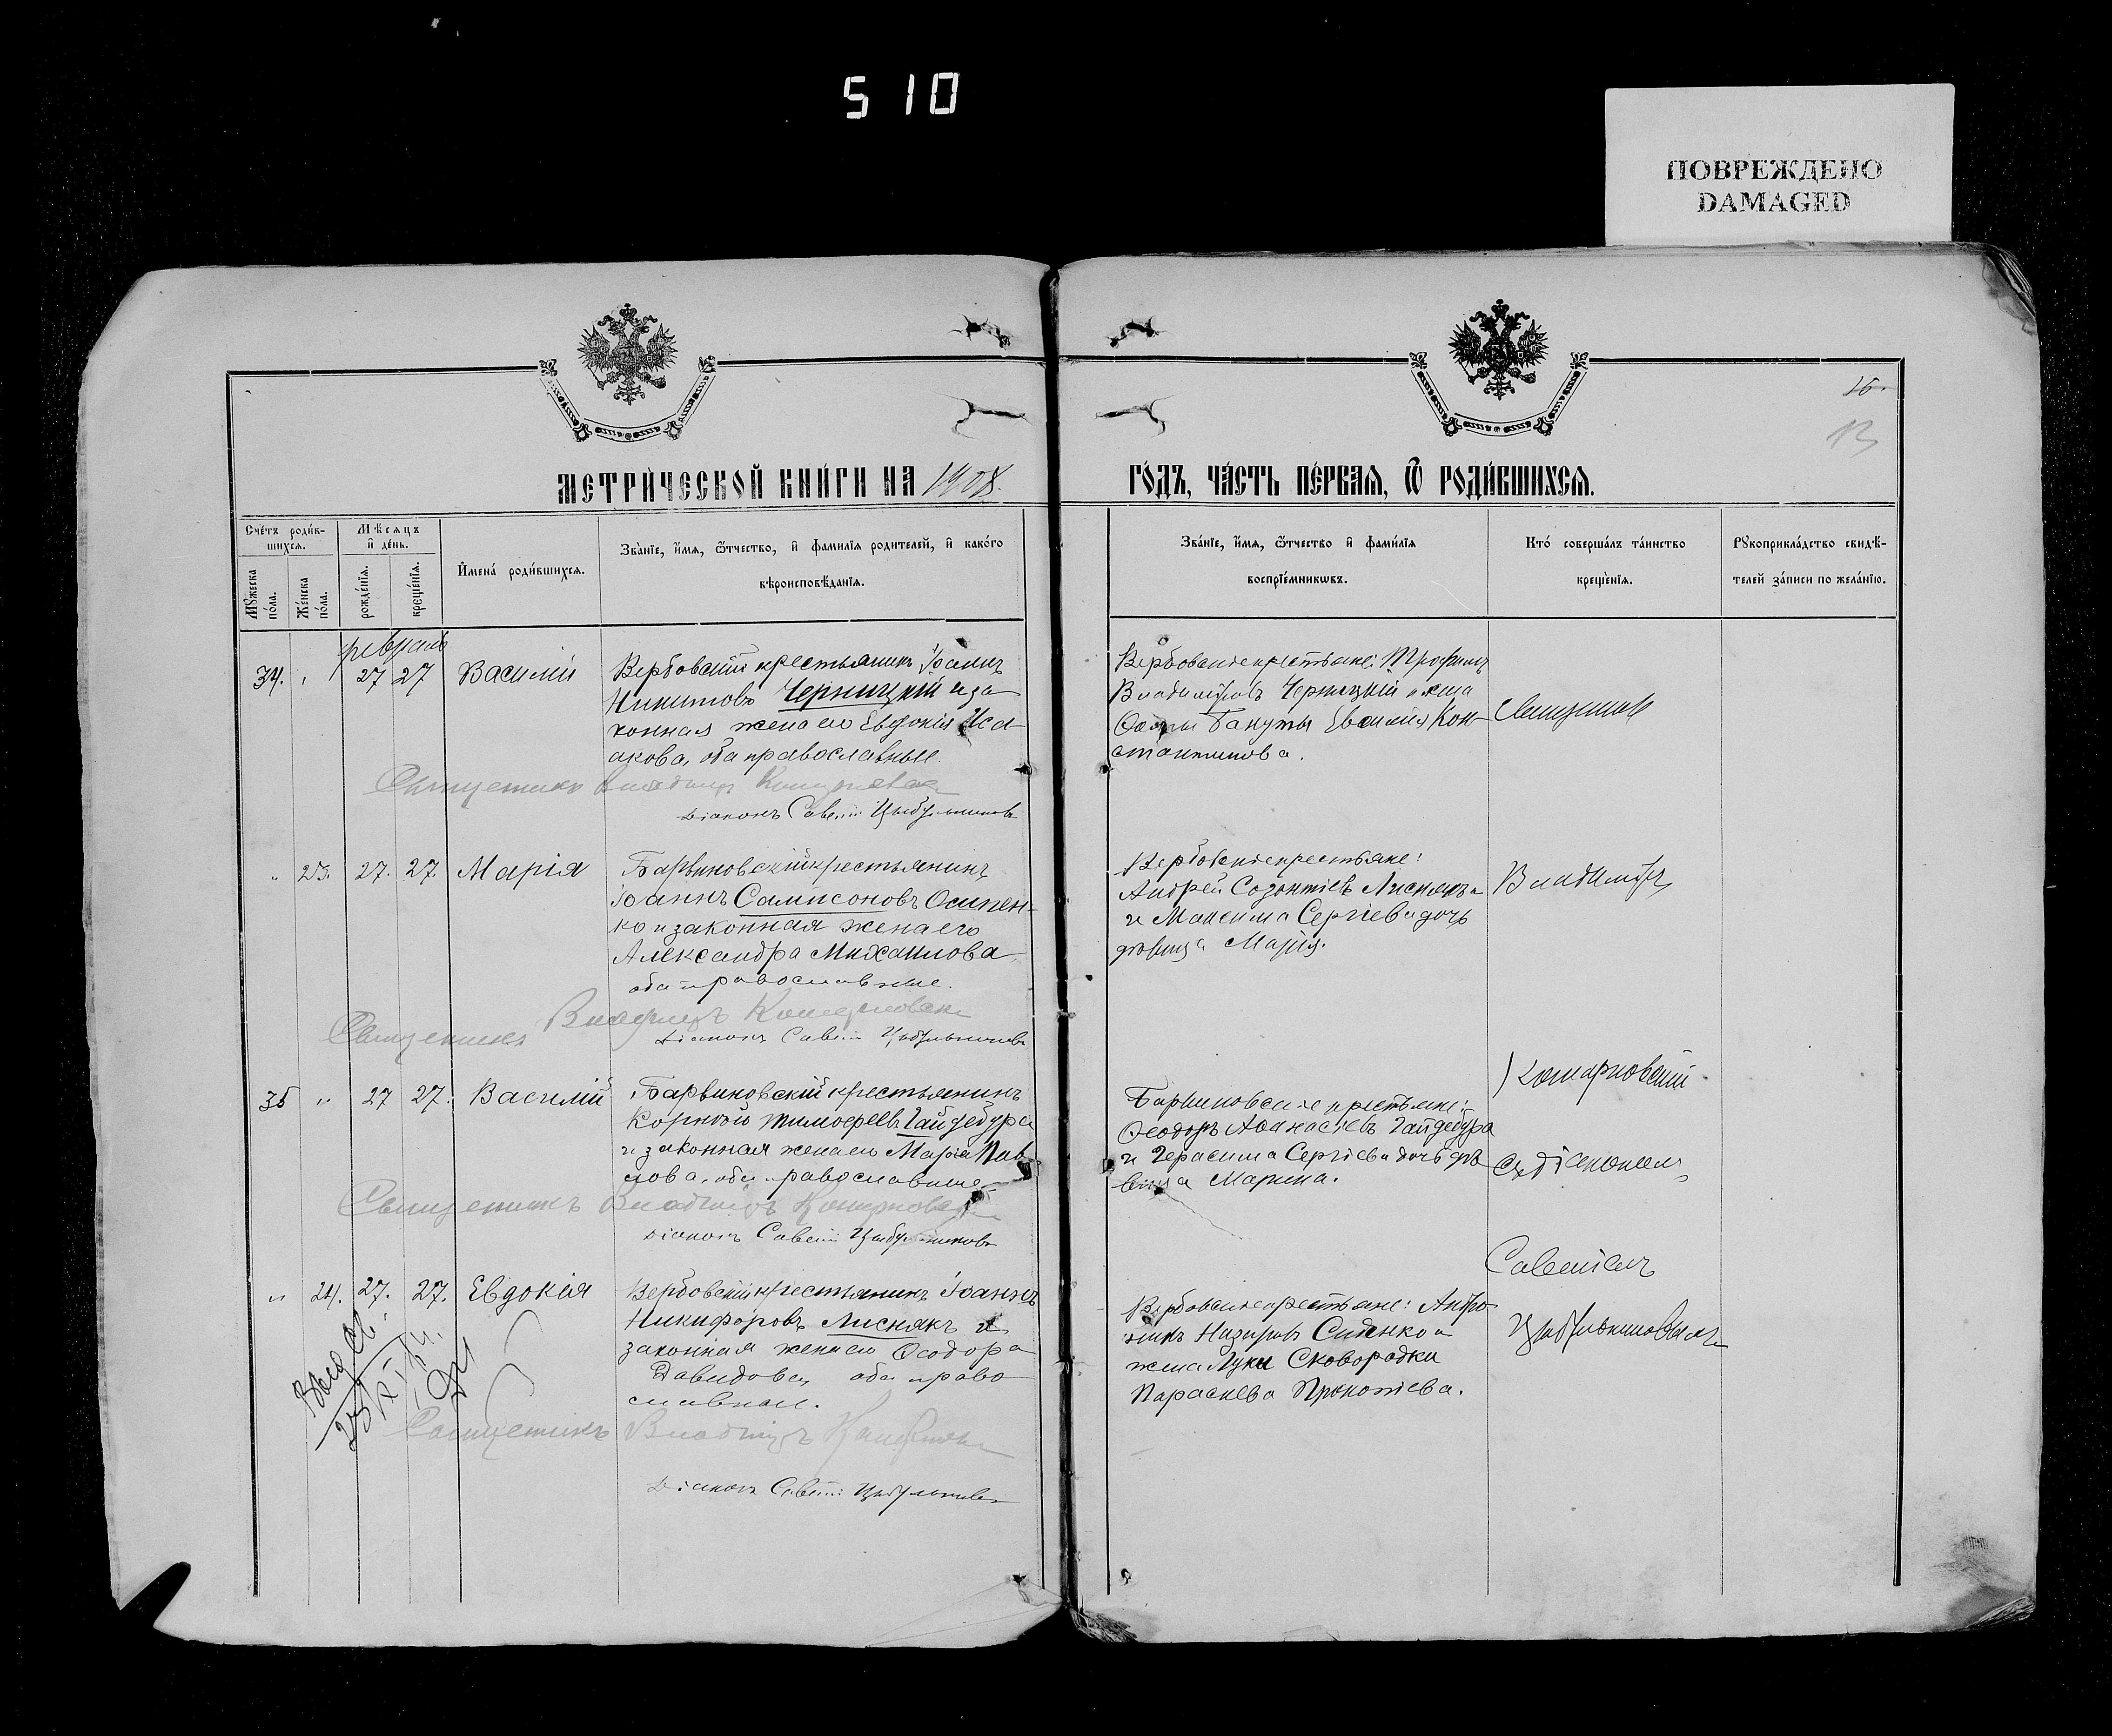 510
ПОВРЕЖДЕНО
DAMAGED
МЕТРИ́ЧЕСКОЙ КНИ́ГИ НА 1908
ГО́ДЪ, ЧА́СТЬ ПЕ́РВАѦ, Ѿ РОДИ́ВШИХСѦ.
16.
13
Сче́тъ роди́в-
шихсѧ.
Мѣсѧцъ
и҆ де́нь.
Мꙋ́жеска
по́ла.
Же́нска
по́ла.
рожде́нїѧ.
креще́нїѧ.
И҆мена́ роди́вшихсѧ.
Зва́нїе, и҆́мѧ, ѻ҆́тчество, и҆ фамилїѧ родителей, и҆ како́гѡ
вѣроисповѣ́данїѧ.
Зва́нїе, и҆́мѧ, ѻ҆́тчество и҆ фами́лїѧ
воспрїе́мникѡвъ.
Кто́ соверша́лъ та́инство
креще́нїѧ.
Рꙋкоприкла́дство свидѣ́-
телей за́писи по жела́нїю.
февраль
34. " 27 27 Василій
Вербовскій крестьянинъ Іоаннъ
Никитовъ Черницкій и за
конная жена его Евдокія Иса
акова, оба православные.
Священникъ Владиміръ Комарновскій
Діаконъ Савелій Цыбульниковъ
Вербовскіе крестьяне: Трофимъ
Владиміровъ Черницкій и жена
Бакуты Евфимія Кон
стантинова.
Священник
" 23. 27. 27. Марія
Барвиновскій крестьянинъ
Іоаннъ Сампсоновъ Осипен-
ко и законная жена его
Александра Михаилова
оба православные.
Священникъ Владиміръ Комарновскій
Діаконъ Савелій Цыбульниковъ
Вербовскіе крестьяне:
Андрей Созонтіевъ Лиснякъ
и Максима Сергіева дочь
дѣвица Марія.
Владиміръ
Комарновскій
35 " 27 27. Василій
Барвиновскій крестьянинъ
Корнилій Тимофеевъ Гайдебура
и законная жена его Марія Пав
лова, оба православные
Священникъ Владиміръ Комарновскій
Діаконъ Савелій Цыбульниковъ
Барвиновскіе крестьяне:
Ѳеодоръ Аѳанасіевъ Гайдебура
и Герасима Сергіева дочь дѣ
вица Марина.
съ діакономъ
Савеліемъ
" 24. 27. 27. Евдокія
Вербовскій крестьянинъ Іоаннъ
Никифоровъ Лиснякъ и
законная жена его Ѳеодора
Давидова, оба право
славные.
Священникъ Владиміръ Комарновскій
Діаконъ Савелій Цыбульниковъ
Вербовскіе крестьяне:
Назаровъ Сиденко и
жена Луки Сковородки
Параскева Прокопіева.
Цыбульниковымъ